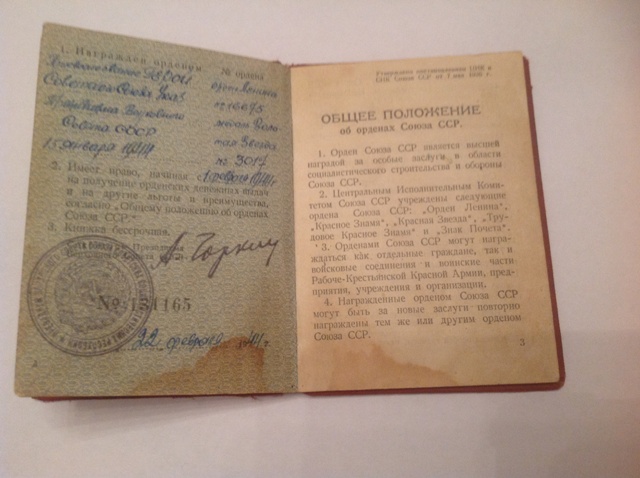 1. Награжден орденом
№ ордена
Советского Союза Указ
Президиума Верховного
Совета СССР
15 января 1944
орден Ленина
№ 16695
медаль Золо
тая Звезда
№ 3017
2. Имеет право, начиная с 1 февраля 1944 г.
на получение орденских денежных выдач
и на другие льготы и преимущества,
согласно „Общему положению об орденах
Союза ССР."
3. Книжка бессрочная.
А. Горкин
№ 134165
22 февраля
Утверждено постановлением ЦИК и
СНК Союза ССР от 7 мая 1936 г.
ОБЩЕЕ ПОЛОЖЕНИЕ
об орденах Союза ССР.
1. Орден Союза ССР является высшей
наградой за особые заслуги в области
социалистического строительства и обороны
Союза ССР.
2. Центральным Исполнительным Коми-
тетом Союза ССР учреждены следующие
ордена Союза ССР: „Орден Ленина",
„Красное Знамя", „Красная Звезда", „Тру-
довое Красное Знамя" и „Знак Почета".
3. Орденами Союза ССР могут награ-
ждаться как отдельные граждане, так и
войсковые соединения и воинские части
Рабоче-Крестьянской Красной Армии, пред-
приятия, учреждения и организации.
4. Награжденные орденом Союза ССР
могут быть за новые заслуги повторно
награждены тем же или другим орденом
Союза ССР.
3